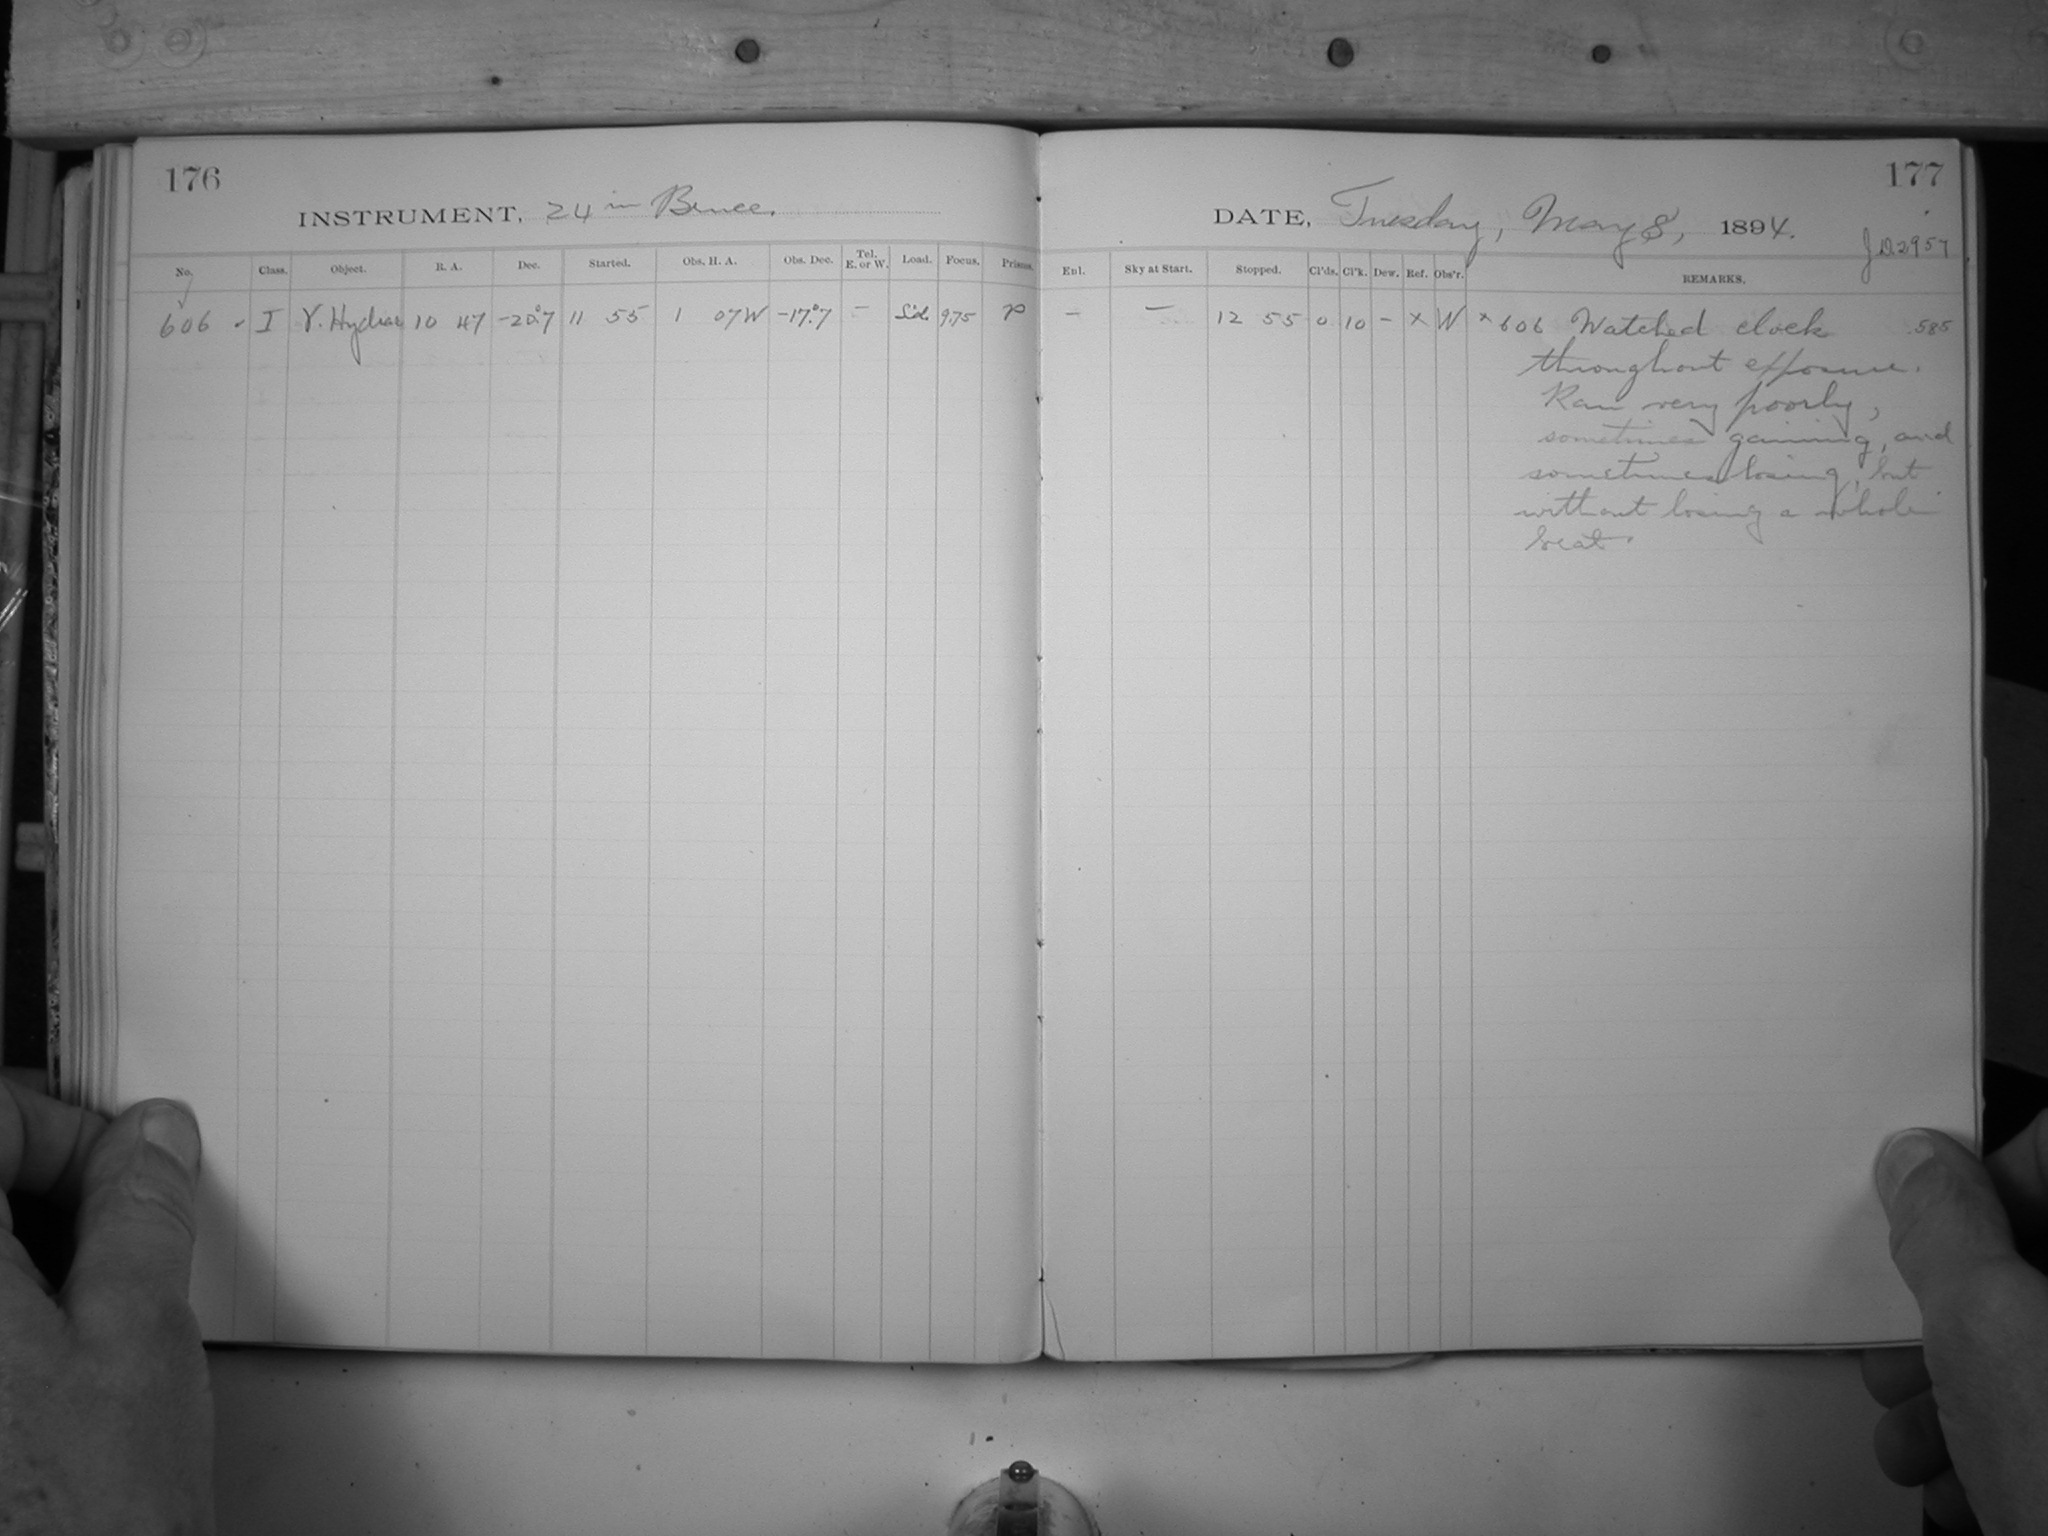 176
INSTRUMENT, 24 in Bruce.
No. Class. Object. R. A. Dec. Started. Obs. H. A. Obs. Dec. Tel. E. or W. Load. Focus. Prisms.
606 - I V. Hydrae 10 47 -20°.7 11 55 1 07W -17°.7 - Sid 9.75
177
DATE, Tuesday, May 8, 1894.
J D 2957
Enl. Sky at Start. Stopped. Cl'ds. Cl'k. Dew. Ref. Obs'r. REMARKS.
- - 12 55 0 10 - x W x 606 Watched clock 585
throughout exposure.
Ran very poorly,
sometimes gaining, and
sometimes losing, but
without losing a whole
beat.